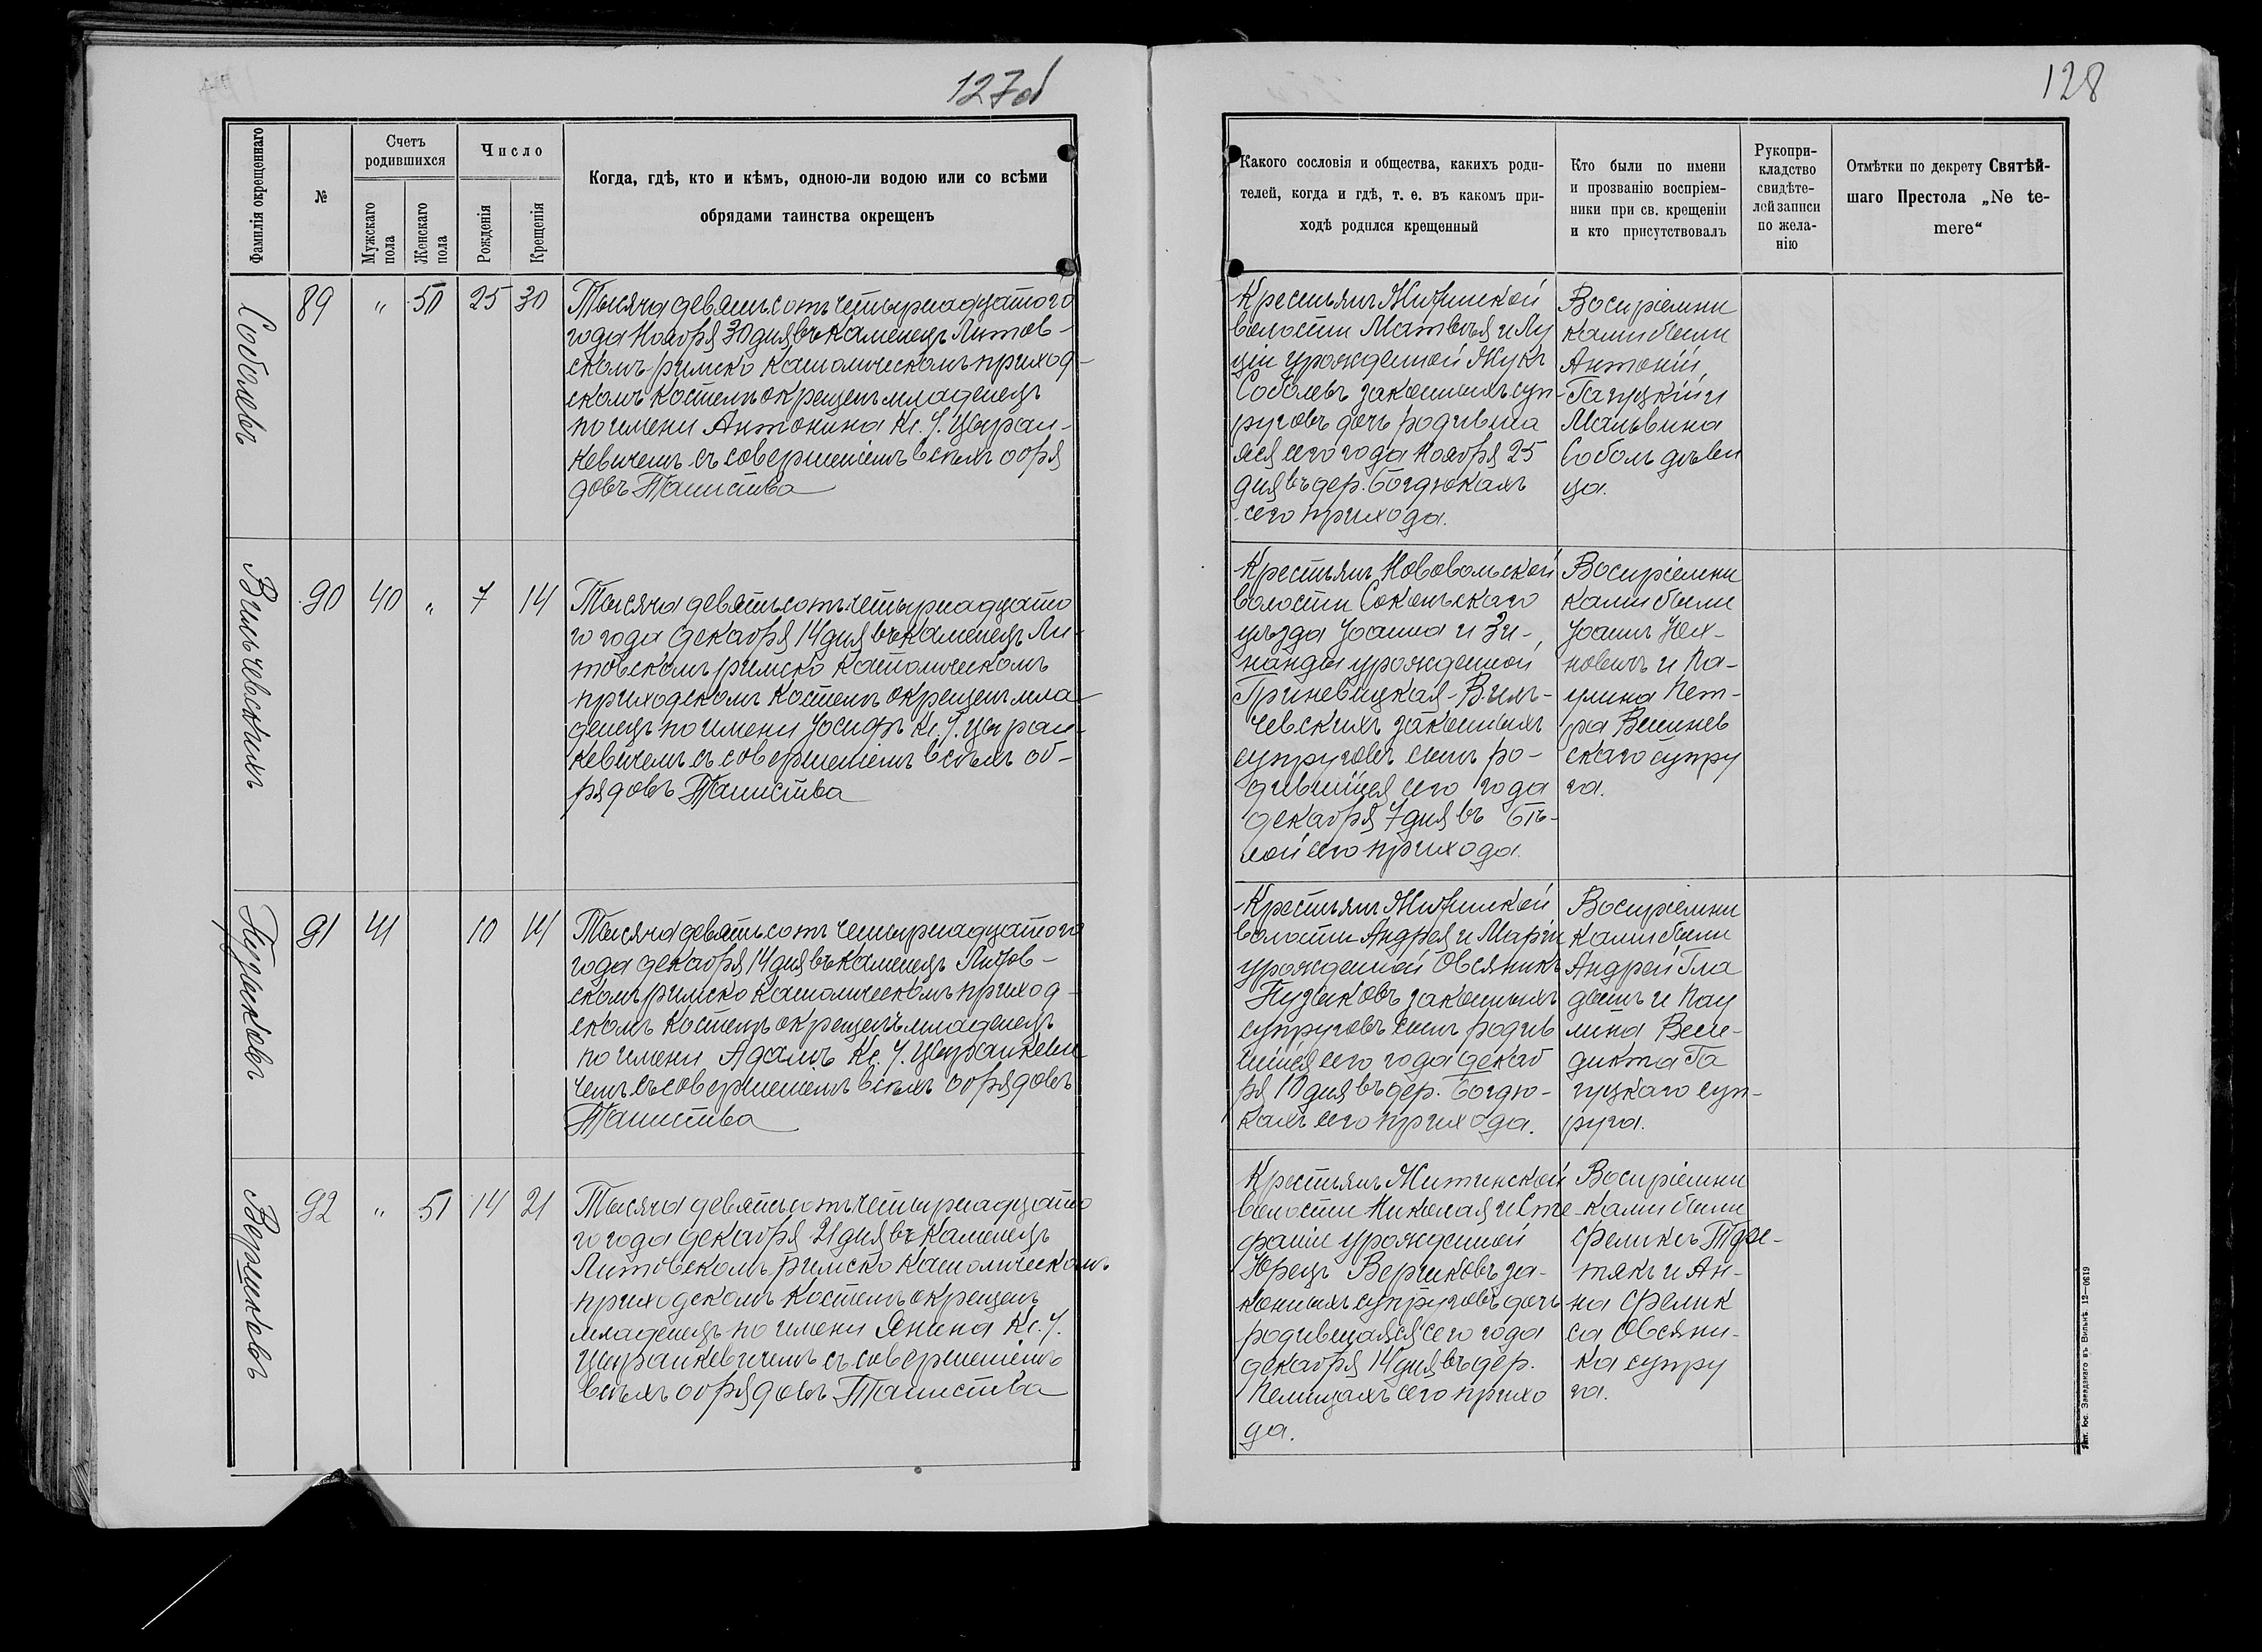 127об
Фамилія окрещеннаго
№
Счетъ
родившихся
Мужскаго
пола
Женскаго
пола
Число
Рожденія
Крещенія
Когда, гдѣ, кто и кѣмъ, одною-ли водою или со всѣми
обрядами таинства окрещенъ
Соболевъ
89 „ 50 25 30
Тысяча девятьсотъ четырнадцатого
года Ноября 30 дня въ Каменецъ Литов-
скомъ римско католическомъ приход-
скомъ костелѣ окрещенъ младенецъ
по имени Антонина Кс. У. Цыран-
кевичемъ съ совершеніемъ всѣхъ обря
довъ Таинства
Вильчевскихъ
90 40 „ 7 14
Тысяча девятьсотъ четырнадцато
го года Декабря 14 дня въ Каменецъ Ли-
товскомъ римско католическомъ
приходскомъ костелѣ окрещенъ мла-
денецъ по имени Іосифъ Кс. У. Цыран-
кевичемъ съ совершеніемъ всѣхъ об-
рядовъ Таинства
Пузыковъ
91 41 10 14
Тысяча девятьсотъ четырнадцатого
года Декабря 14 дня въ Каменецъ Литов-
скомъ римско католическомъ приход-
скомъ костелѣ окрещенъ младенецъ
по имени Адамъ Кс. У. Цыранкеви
чемъ съ совершеніемъ всѣхъ обрядовъ
Таинства
Вершковъ
92 „ 51 14 21
Тысяча девятьсотъ четырнадцато
го года Декабря 21 дня въ Каменецъ
Литовскомъ римско католическомъ
приходскомъ костелѣ окрещенъ
младенецъ по имени Янина Кс. У.
Цыранкевичемъ съ совершеніемъ
всѣхъ обрядовъ Таинства
128
Какого сословія и общества, какихъ роди-
телей, когда и гдѣ, т. е. въ какомъ при-
ходѣ родился крещенный
Кто были по имени
и прозванію воспріем-
ники при св. крещеніи
и кто присутствовалъ
Рукопри-
кладство
свидѣте-
лей записи
по жела-
нію
Отмѣтки по декрету Святѣй-
шаго Престола „Ne te-
mere“
Крестьянъ Житинской
волости Матвѣя и Лу
ціи урожденной Жукъ
Соболевъ законныхъ суп-
руговъ дочь родивша
яся сего года Ноября 25
дня въ дер. Богдюкахъ
сего прихода.
Воспріемни
ками были
Антоній
Гагуцкій и
Мальвина
Соболь дѣви
ца.
Крестьянъ Нововольской
волости Сокольскаго
уѣзда Іоанна и Зи-
наиды урожденной
Гриневицкая-Виль-
чевскихъ законныхъ
супруговъ сынъ ро-
дившійся сего года
Декабря 7 дня въ Бѣ-
лой сего прихода.
Воспріемни
ками были
Іоаннъ Юх-
новичъ и Па-
улина Пет-
ра
скаго супру
га.
Крестьянъ Житинской
волости Андрея и Маріи
урожденной Овсяникъ
Пузыковъ законныхъ
супруговъ сынъ родив
шійся сего года Декаб
ря 10 дня въ дер. Богдю-
кахъ сего прихода.
Воспріемни
ками были
Андрей Гла
дышъ и Пау
лина Вене-
дикта Га
гуцкаго суп-
руга.
Крестьянъ Житинской
волости Николая и Сте-
фаніи урожденной
Юрецъ Вершковъ за-
конныхъ супруговъ дочь
родившаяся сего года
Декабря 14 дня въ дер.
Пелищахъ сего прихо
да.
Воспріемни
ками были
Феликсъ
и Ан-
на Фелик
са Овсяни-
ка супру
га.
Тип. Іос. Завадзкаго въ Вильнѣ. 12—0619